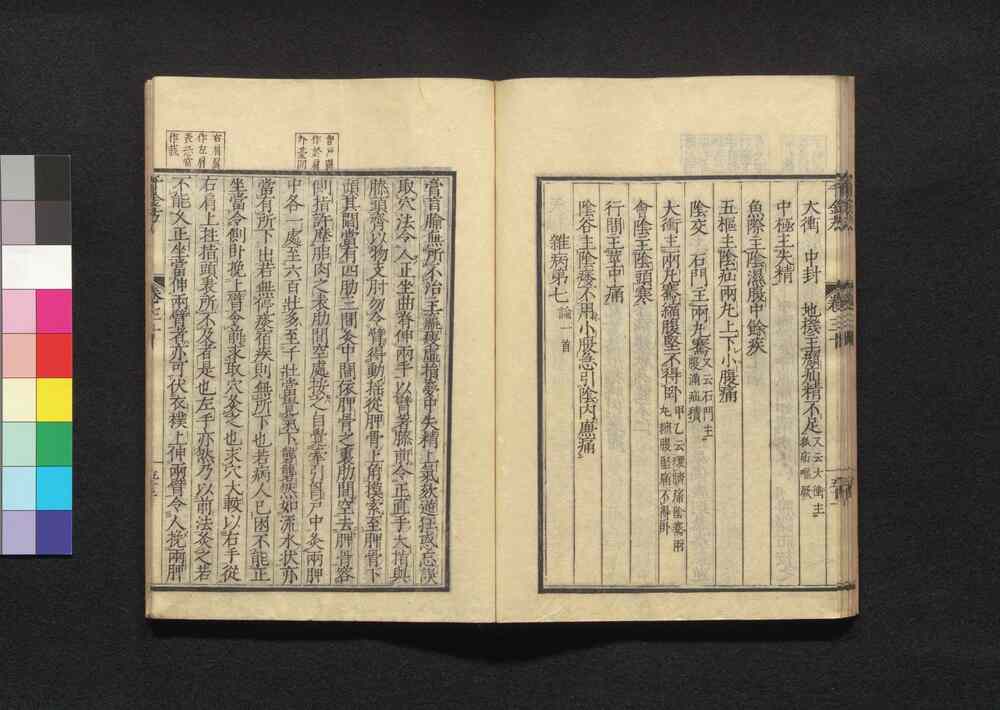 大衝　中封　地機主㿗疝精不足又云大衝主
中極主失精
魚際主陰濕腹中餘疾
五樞主陰疝兩丸上下小腹痛
陰交　石門主兩丸騫又云石門主腹滿疝積
大衝主兩丸騫縮腹堅不得臥甲乙云環臍痛陰騫兩丸縮腹堅痛不得臥
會陰主陰頭寒
行間主莖中痛
陰谷主陰痿不用小腹急引陰內廉痛
雜病第七論一首
膏肓腧無所不治主羸瘦虛損夢中失精上氣欬逆狂惑忘誤
取穴法令人正坐曲脊伸兩手以臂著膝前令正直手大指與
膝頭齊以物支肘勿令臂得動搖從胛骨上角摸索至胛骨下
頭其間當有四肋三間灸中間依胛骨之裏肋間空去胛骨容
側指許摩膂肉之表肋間空處按之自覺牽引胷戶中灸兩胛
中各一處至六百壯多至千壯當覺氣下礱礱然如流水狀亦
當有所下出若無停痰宿疾則無所下也若病人已困不能正
坐當令側臥挽上臂令前求取穴灸之也求穴大較以右手從
右肩上住指頭表所不及者是也左手亦然乃以前法灸之若
不能久正坐當伸兩臂者亦可伏衣襆上伸兩臂令人挽兩胛